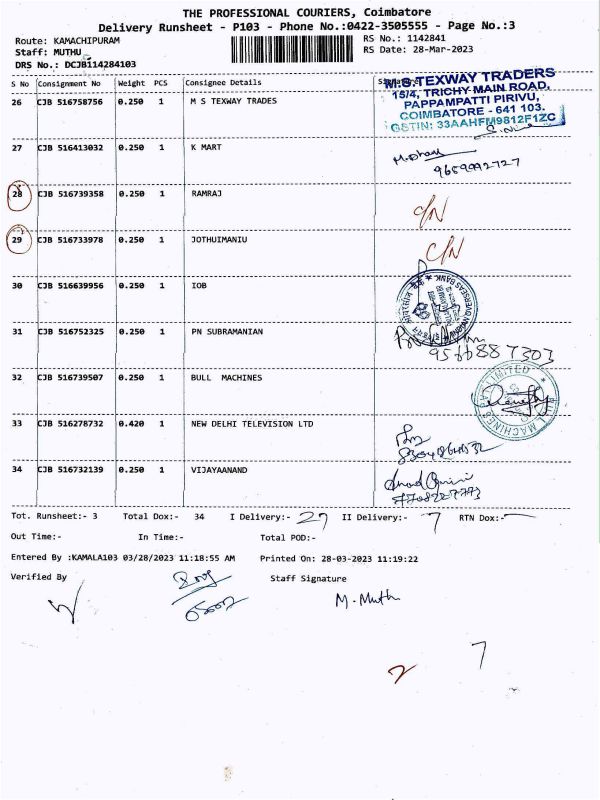 THE PROFESSIONAL COURIERS, Coimbatore
Delivery Runsheet - P103 - Phone No.:0422-3505555 - Page No.:3
Route: KAMACHIPURAM
RS No.: 1142841
Staff: MUTHU
RS Date: 28-Mar-2023
DRS No.: DCJB114284103
S No Consignment No Weight PCS Consignee Details
M.S TEXWAY TRADERS
15/4, TRICHY MAIN ROAD,
PAPPAMPATTI PIRIVU,
COIMBATORE - 641 103.
GSTIN: 33AAHFM9812F1ZC
26 CJB 516758756 0.250 1 M S TEXWAY TRADES
27 CJB 516413032 0.250 1 K MART
9659992727
28 CJB 516739358 0.250 1 RAMRAJ C/N
29 CJB 516733978 0.250 1 JOTHUIMANIU C/N
30 CJB 516639956 0.250 1 IOB
OVERSEAS BANK
31 CJB 516752325 0.250 1 PN SUBRAMANIAN
9566887303
32 CJB 516739507 0.250 1 BULL MACHINES
BULL MACHINES LIMITED
33 CJB 516278732 0.420 1 NEW DELHI TELEVISION LTD
34 CJB 516732139 0.250 1 VIJAYAANAND
7708227773
Tot. Runsheet:- 3 Total Dox:- 34 I Delivery:- 27 II Delivery:- 7 RTN Dox:-
Out Time:- In Time:- Total POD:-
Entered By :KAMALA103 03/28/2023 11:18:55 AM Printed On: 28-03-2023 11:19:22
Verified By Staff Signature
M. Muth
7
2